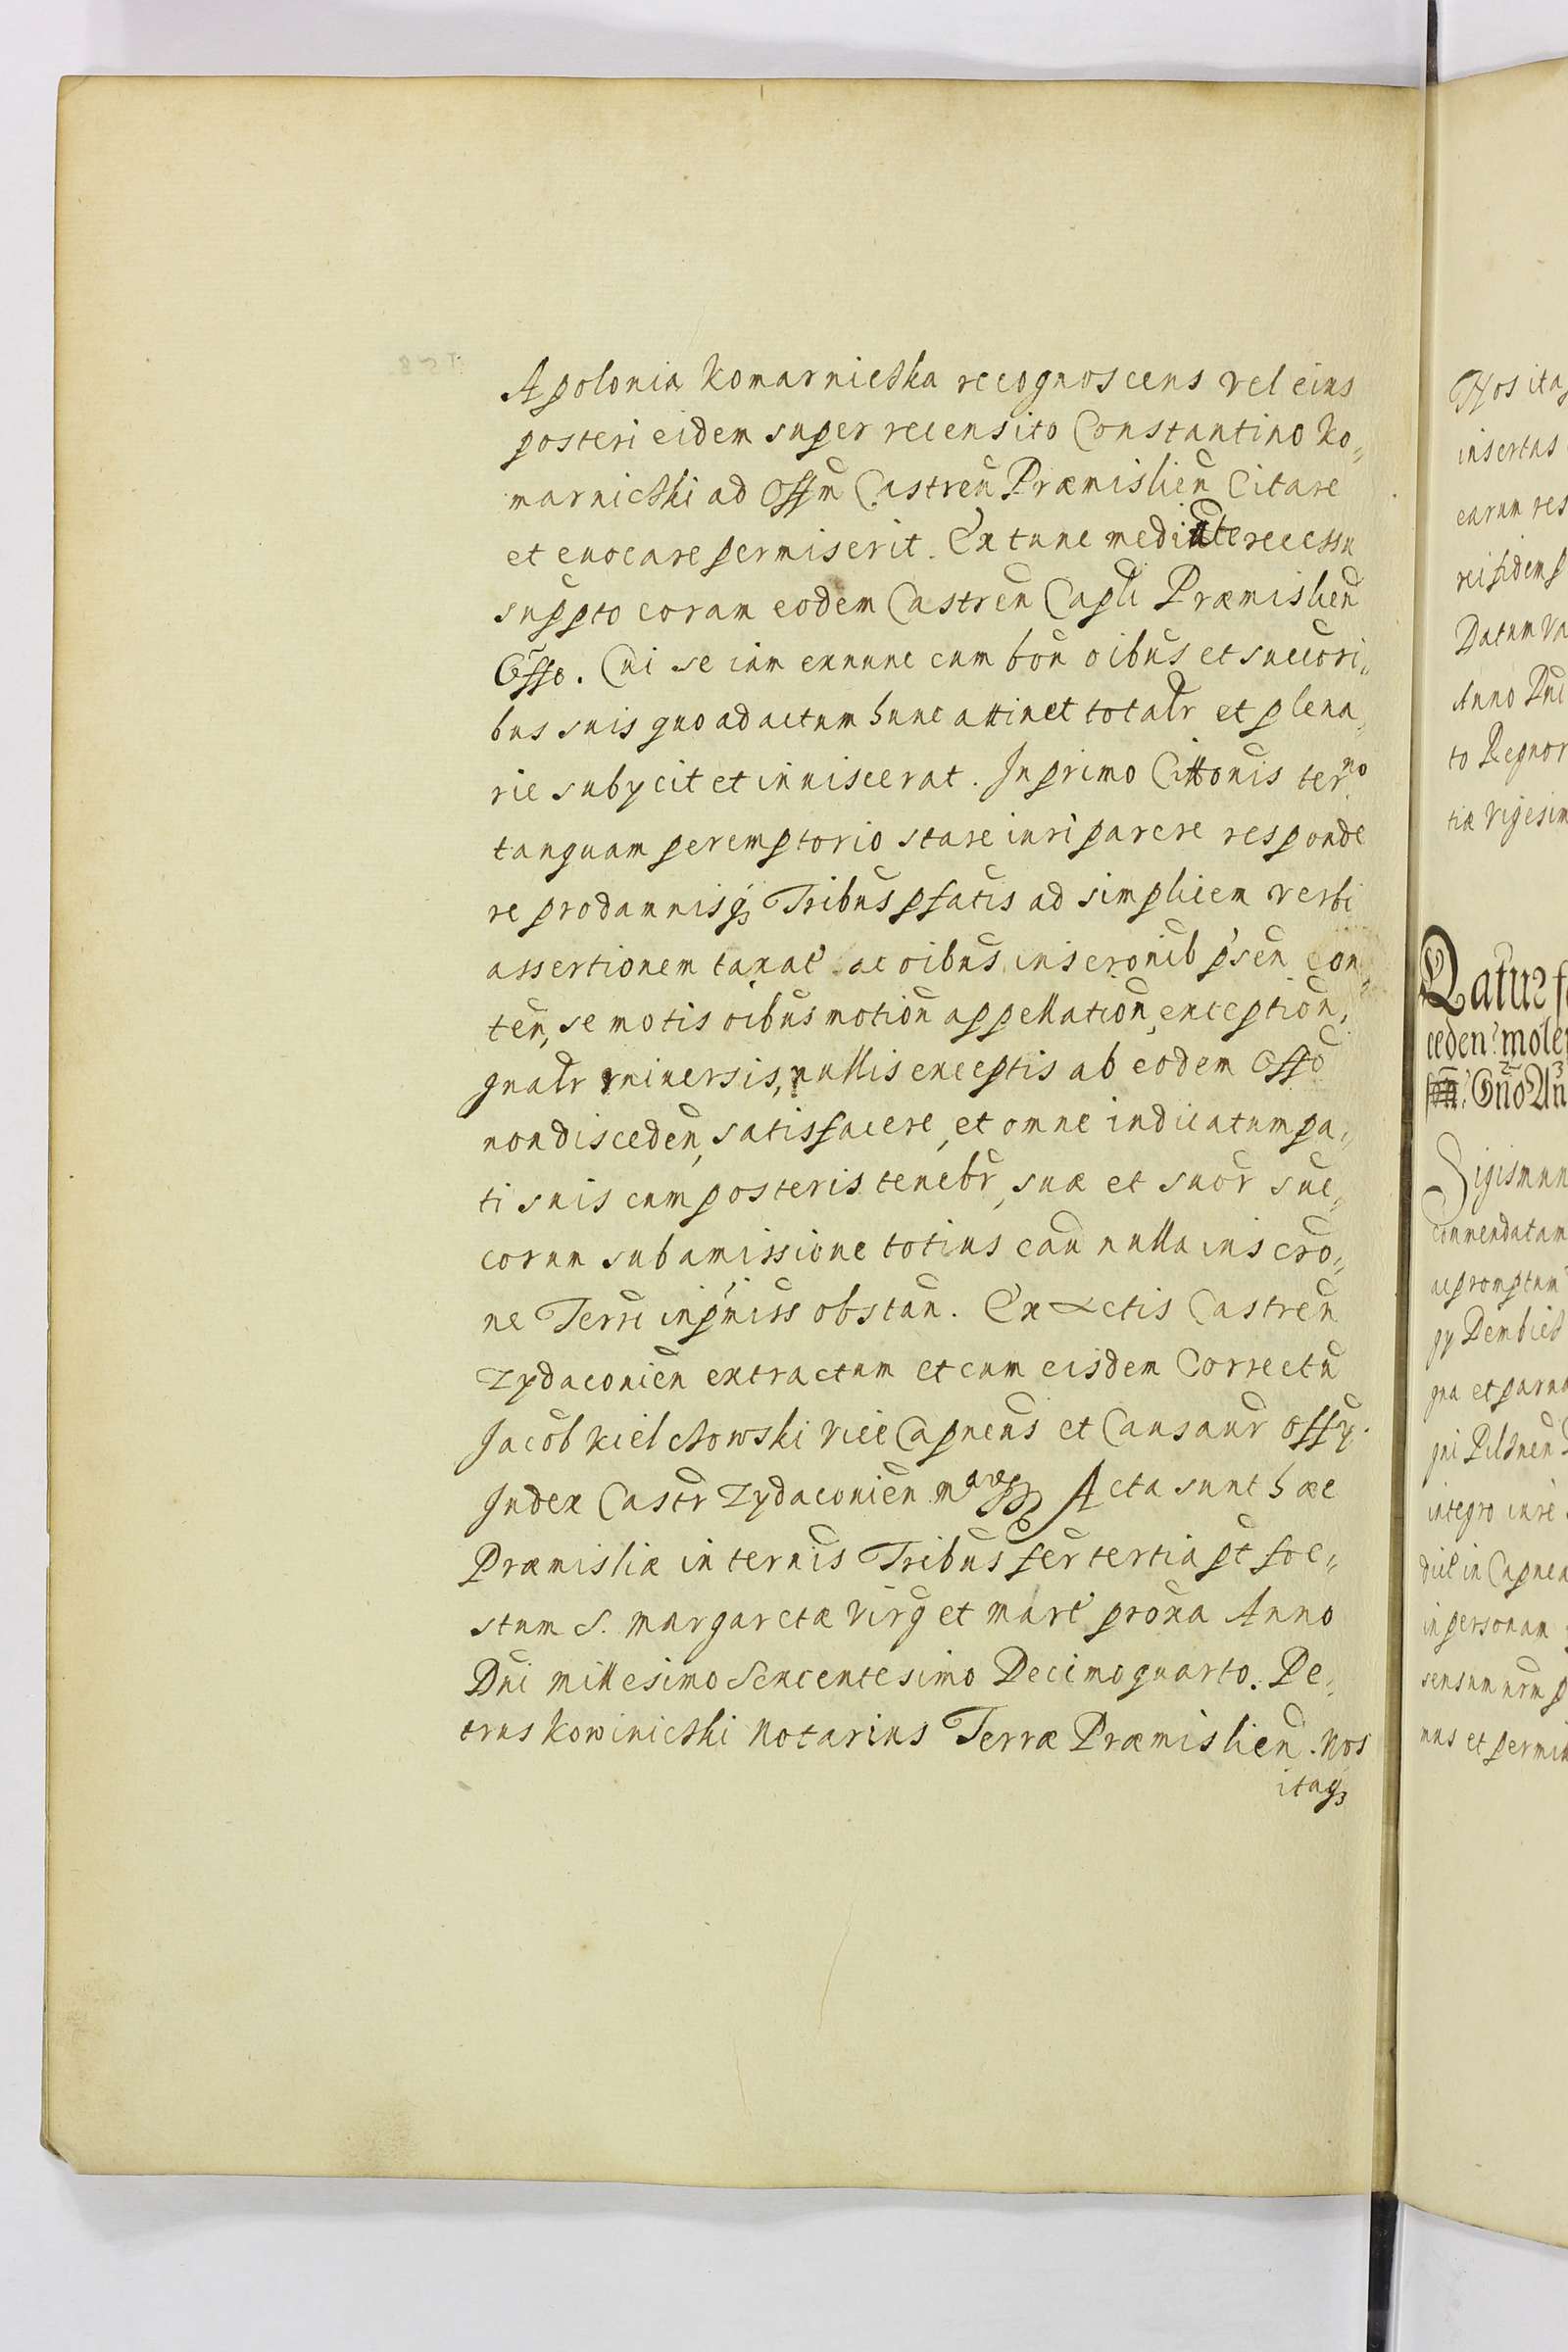 Apolonia Komarnicżka recognoscens vel eius
posteri eidem super recensito Constantino Ko„
marnicżki ad Offm Castren Præmislien Citare
et euocare permiserit. Ex tunc mediate recessu
suppto coram eodem Castren Capli Præmislien
Offo. Cui se iam exnunc cum bon oibus et succori„
bus suis quo ad actum hunc attinet totalr et plena„
rie subycit et inuiscerat. In primo Cittonis ter^no
tanquam peremptorio stare iuri parere responde
re pro damnisq3 Tribus pfatis ad simplicem verbi
assertionem taxat. ac oibus inscronib psen Con„
ten, semotis oibus motion appellation, exception,
gnalr vniuersis, nullis exceptis ab eodem Offo
non disceden, satisfacere, et omne iudicatum pa„
ti suis cum posteris tenebr, suæ et suor suc„
corum sub amissione totius cau nulla inscro„
ne Terri in pmiss obstan. Ex Actis Castren
Zydaconien extractum et cum eisdem Correctu
Jacob Kielchowski vice Capneus et Causaur Offy.
Judex Castr Zydaconien Acta sunt hæc
Præmisliæ in ternis Tribus fer tertia pt foe„
stum S. Margaretæ Virg et Mart proxa Anno
Dni Millesimo Sexcentesimo Decimoquarto. Pe„
trus Kowinicżki Notarius Terræ Præmislien. Nos
itaq3
Nos itaq
insertas
earum res
rei fidem p
Datum Va
Anno Dni
to Regnor
tiæ vigesim
ceden mole
Gno Au
Sigismun
commendatam
ac promptum
gna et paruo
gni Pilsnen
integro iure
in personam
sensum nrm p
mus et permit